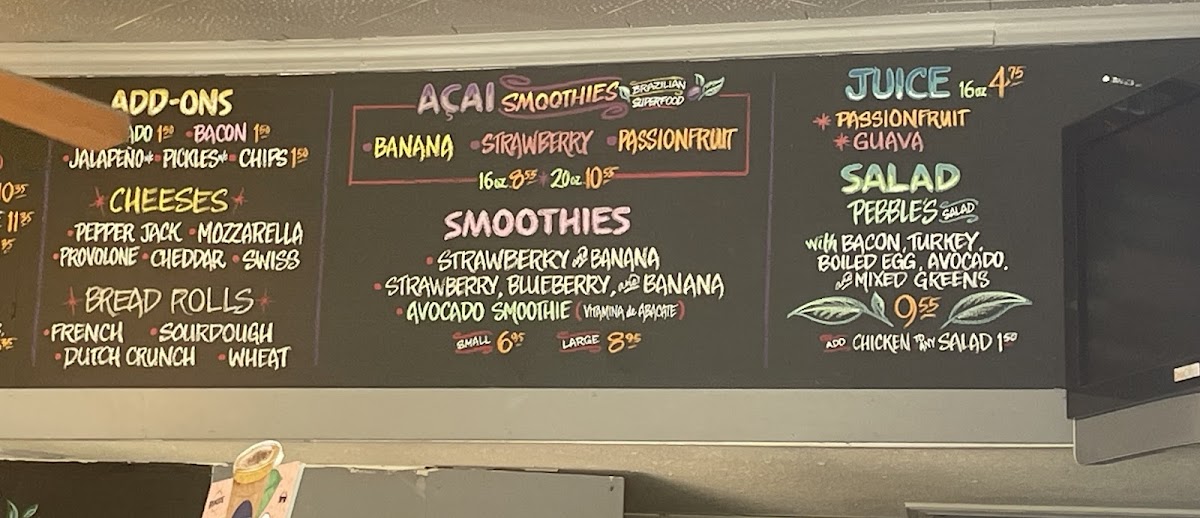 10.35
11.35
ADD-ONS
ADO 1.50 • BACON 1.50
• JALAPEÑO • PICKLES • CHIPS 1.50
* CHEESES *
• PEPPER JACK • MOZZARELLA
• PROVOLONE • CHEDDAR • SWISS
* BREAD ROLLS *
• FRENCH • SOURDOUGH
• DUTCH CRUNCH • WHEAT
AÇAI SMOOTHIES BRAZILIAN SUPERFOOD
• BANANA • STRAWBERRY • PASSIONFRUIT
16oz 8.55 * 20oz 10.55
SMOOTHIES
• STRAWBERRY and BANANA
• STRAWBERRY, BLUEBERRY, and BANANA
• AVOCADO SMOOTHIE (VITAMINA de ABACATE)
SMALL 6.95 LARGE 8.95
JUICE 16oz 4.75
* PASSIONFRUIT
* GUAVA
SALAD
PEBBLE'S SALAD
with BACON, TURKEY,
BOILED EGG, AVOCADO,
and MIXED GREENS
9.55
ADD CHICKEN TO ANY SALAD 1.50